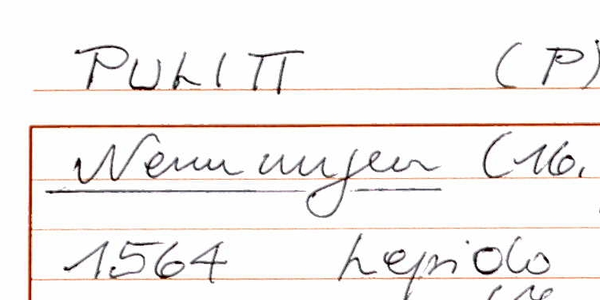 PULITI (P)
Nennungen (16.
1564 Lepido